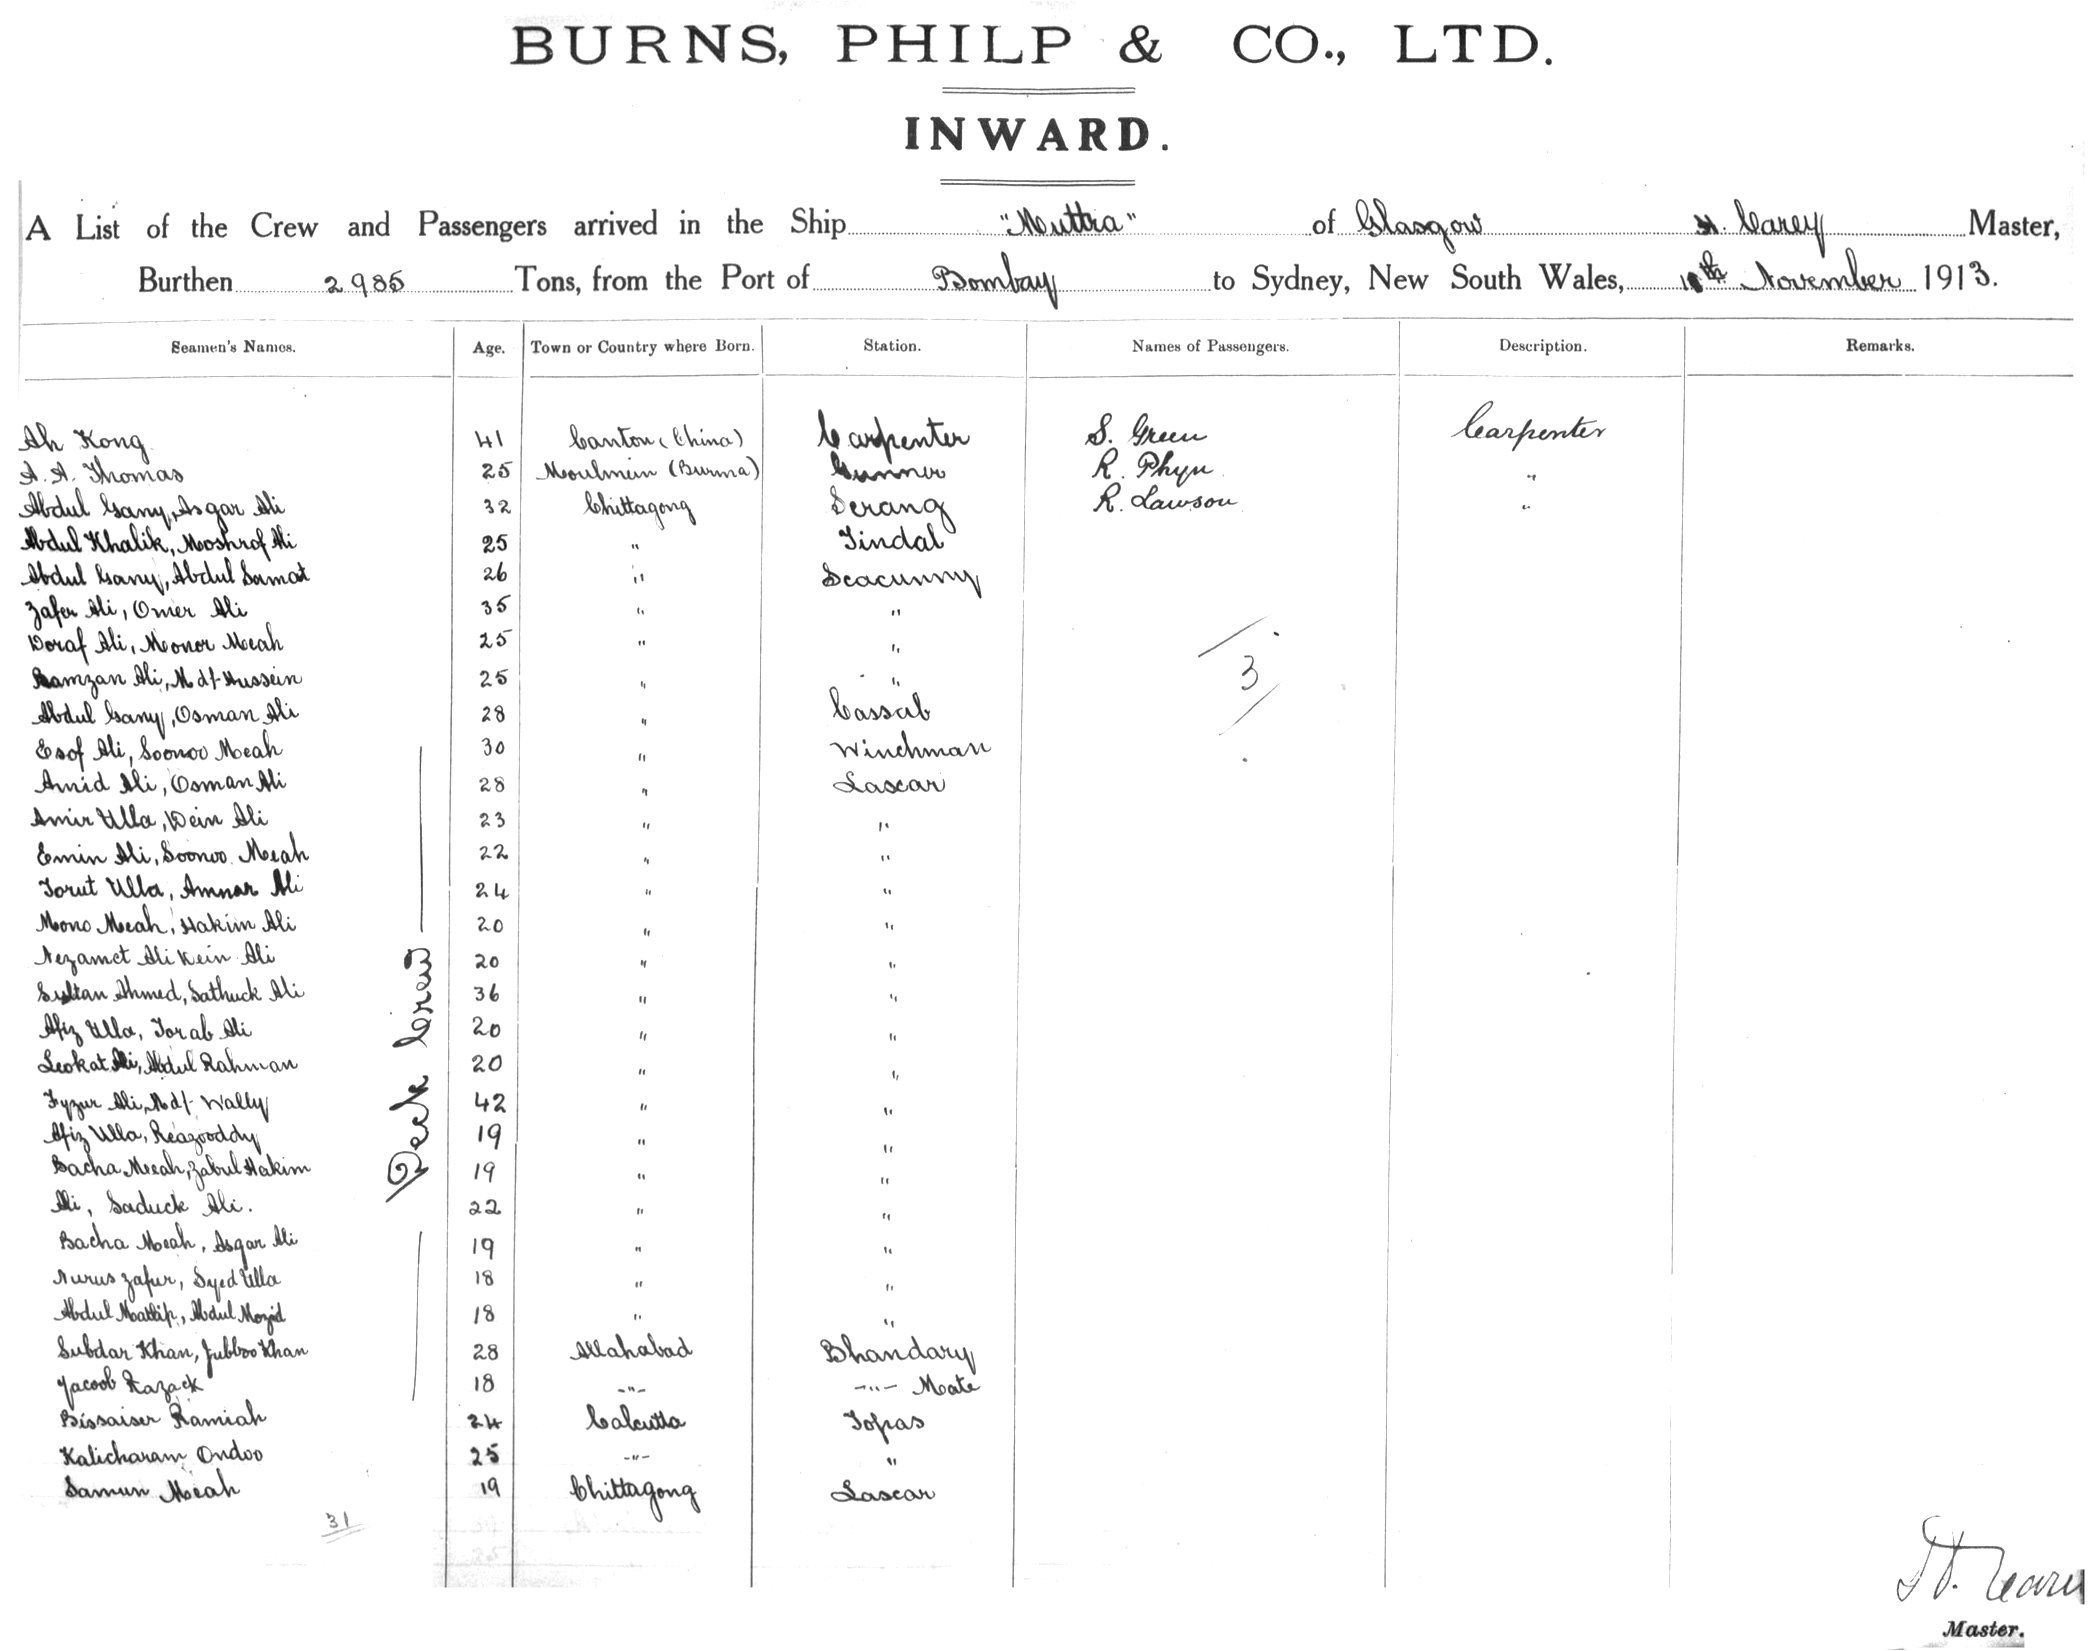 BURNS, PHILP & CO., LTD.
INWARD.
A List of the Crew and Passengers arrived in the Ship "Muttra" of Glasgow H. Carey Master,
Burthen 2985 Tons, from the Port of Bombay to Sydney, New South Wales, November 1913.
Seamen's Names. Age. Town or Country where Born. Station. Names of Passengers. Description. Remarks.
Ah Kong 41 Canton (China) Carpenter S. Green Carpenter
A. A. Thomas 25 Moulmein (Burma) Gunner R. Phyn "
Abdul Gany, Asgar Ali 32 Chittagong Serang R. Lawson "
Abdul Khalik, Moshrof Ali 25 " Tindal
Abdul Gany, Abdul Samat 26 " Seacunny
Zafer Ali, Omer Ali 35 " "
Doraf Ali, Monor Meah 25 " "
Ramzan Ali, Md/- Hussein 25 " "
3
Abdul Gany, Osman Ali 28 " Cassab
Esof Ali, Soonoo Meah 30 " Winchman
Amid Ali, Osman Ali 28 " Lascar
Amir Ulla, Dein Ali 23 " "
Emin Ali, Soonoo Meah 22 " "
Torut Ulla, Amnar Ali 24 " "
Mono Meah, Hakim Ali 20 " "
Nezamet Ali Kein Ali 20 " "
Sultan Ahmed, Sathuck Ali 36 " "
Afiz Ulla, Torab Ali 20 " "
Leokat Ali, Abdul Rahman 20 " "
Fyzur Ali, Md/- Wally 42 " "
Afiz Ulla, Reazooddy 19 " "
Bacha Meeah, Zabul Hakim 19 " "
Ali, Saduck Ali. 22 " "
Bacha Meah, Asgar Ali 19 " "
Nurus Zafur, Syed Ulla 18 " "
Abdul Mattip, Abdul Mozid 18 " "
Subdar Khan, Jubboo Khan 28 Allahabad Bhandary
Yacoob Razack 18 -"- -"- Mate
Bissaiser Ramiah 24 Calcutta Topas
Kalicharam Ondoo 25 -"- "
Samun Meah 19 Chittagong Lascar
Deck Crew
31
H. Carey
Master.